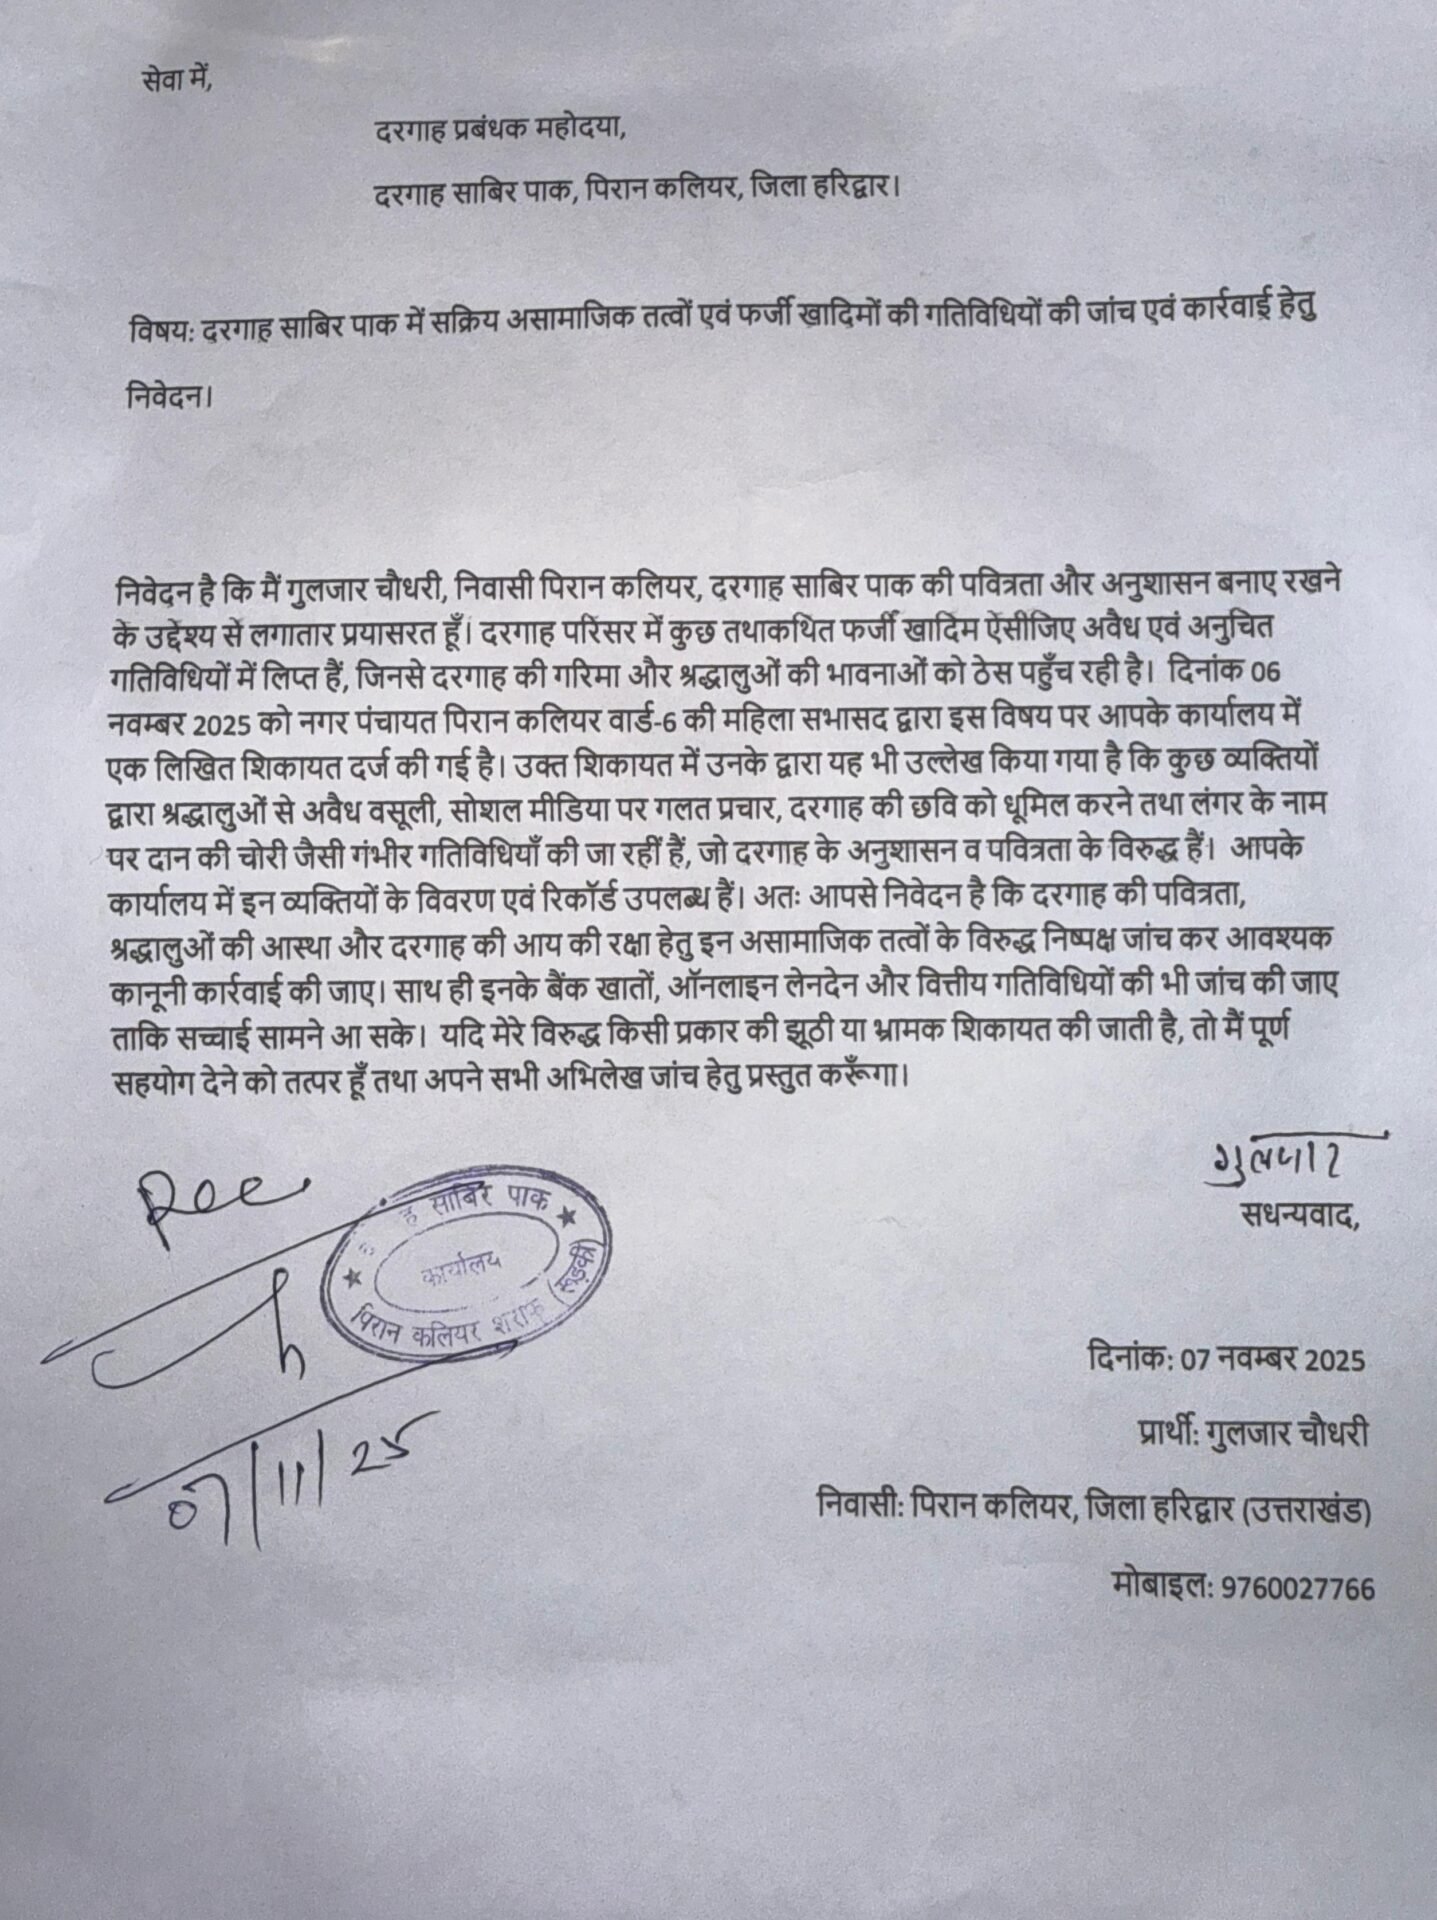 सेवा में,
दरगाह प्रबंधक महोदया,
दरगाह साबिर पाक, पिरान कलियर, जिला हरिद्वार।
विषय: दरगाह साबिर पाक में सक्रिय असामाजिक तत्वों एवं फर्जी खादिमों की गतिविधियों की जांच एवं कार्रवाई हेतु
निवेदन।
निवेदन है कि मैं गुलजार चौधरी, निवासी पिरान कलियर, दरगाह साबिर पाक की पवित्रता और अनुशासन बनाए रखने
के उद्देश्य से लगातार प्रयासरत हूँ। दरगाह परिसर में कुछ तथाकथित फर्जी खादिम ऐसीजिए अवैध एवं अनुचित
गतिविधियों में लिप्त हैं, जिनसे दरगाह की गरिमा और श्रद्धालुओं की भावनाओं को ठेस पहुँच रही है। दिनांक 06
नवम्बर 2025 को नगर पंचायत पिरान कलियर वार्ड-6 की महिला सभासद द्वारा इस विषय पर आपके कार्यालय में
एक लिखित शिकायत दर्ज की गई है। उक्त शिकायत में उनके द्वारा यह भी उल्लेख किया गया है कि कुछ व्यक्तियों
द्वारा श्रद्धालुओं से अवैध वसूली, सोशल मीडिया पर गलत प्रचार, दरगाह की छवि को धूमिल करने तथा लंगर के नाम
पर दान की चोरी जैसी गंभीर गतिविधियाँ की जा रहीं हैं, जो दरगाह के अनुशासन व पवित्रता के विरुद्ध हैं। आपके
कार्यालय में इन व्यक्तियों के विवरण एवं रिकॉर्ड उपलब्ध हैं। अतः आपसे निवेदन है कि दरगाह की पवित्रता,
श्रद्धालुओं की आस्था और दरगाह की आय की रक्षा हेतु इन असामाजिक तत्वों के विरुद्ध निष्पक्ष जांच कर आवश्यक
कानूनी कार्रवाई की जाए। साथ ही इनके बैंक खातों, ऑनलाइन लेनदेन और वित्तीय गतिविधियों की भी जांच की जाए
ताकि सच्चाई सामने आ सके। यदि मेरे विरुद्ध किसी प्रकार की झूठी या भ्रामक शिकायत की जाती है, तो मैं पूर्ण
सहयोग देने को तत्पर हूँ तथा अपने सभी अभिलेख जांच हेतु प्रस्तुत करूँगा।
गुलजार
सधन्यवाद,
Rec
साबिर पाक
कार्यालय
पिरान कलियर शराफ (रूड़की)
07/11/25
दिनांक: 07 नवम्बर 2025
प्रार्थी: गुलजार चौधरी
निवासी: पिरान कलियर, जिला हरिद्वार (उत्तराखंड)
मोबाइल: 9760027766